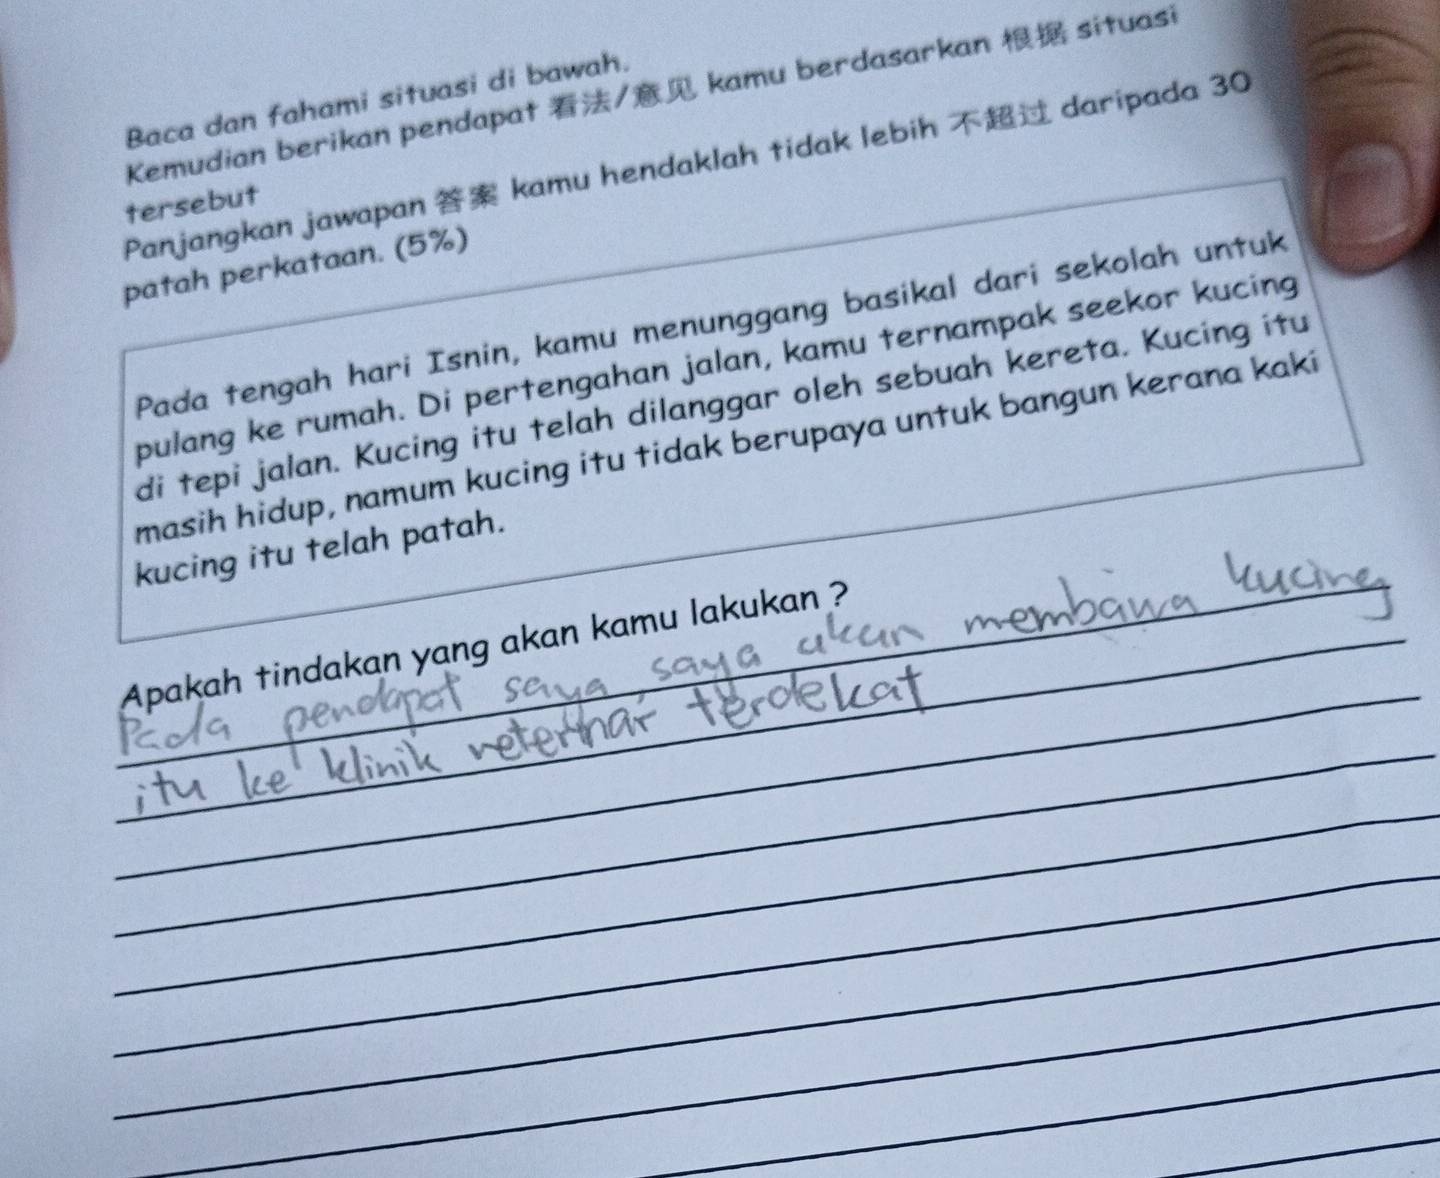 Baca dan fahami situasi di bawah.
Kemudian berikan pendapat 看法/意见 kamu berdasarkan 根据 situasi
tersebut
Panjangkan jawapan 答案 kamu hendaklah tidak lebih 不超过 daripada 30
patah perkataan. (5%)
Pada tengah hari Isnin, kamu menunggang basikal dari sekolah untuk
pulang ke rumah. Di pertengahan jalan, kamu ternampak seekor kucing
di tepi jalan. Kucing itu telah dilanggar oleh sebuah kereta. Kucing itu
masih hidup, namum kucing itu tidak berupaya untuk bangun kerana kaki
kucing itu telah patah.
Apakah tindakan yang akan kamu lakukan ?
Pada pendapat saya, saya akan membawa kucing
itu ke klinik veterinar terdekat